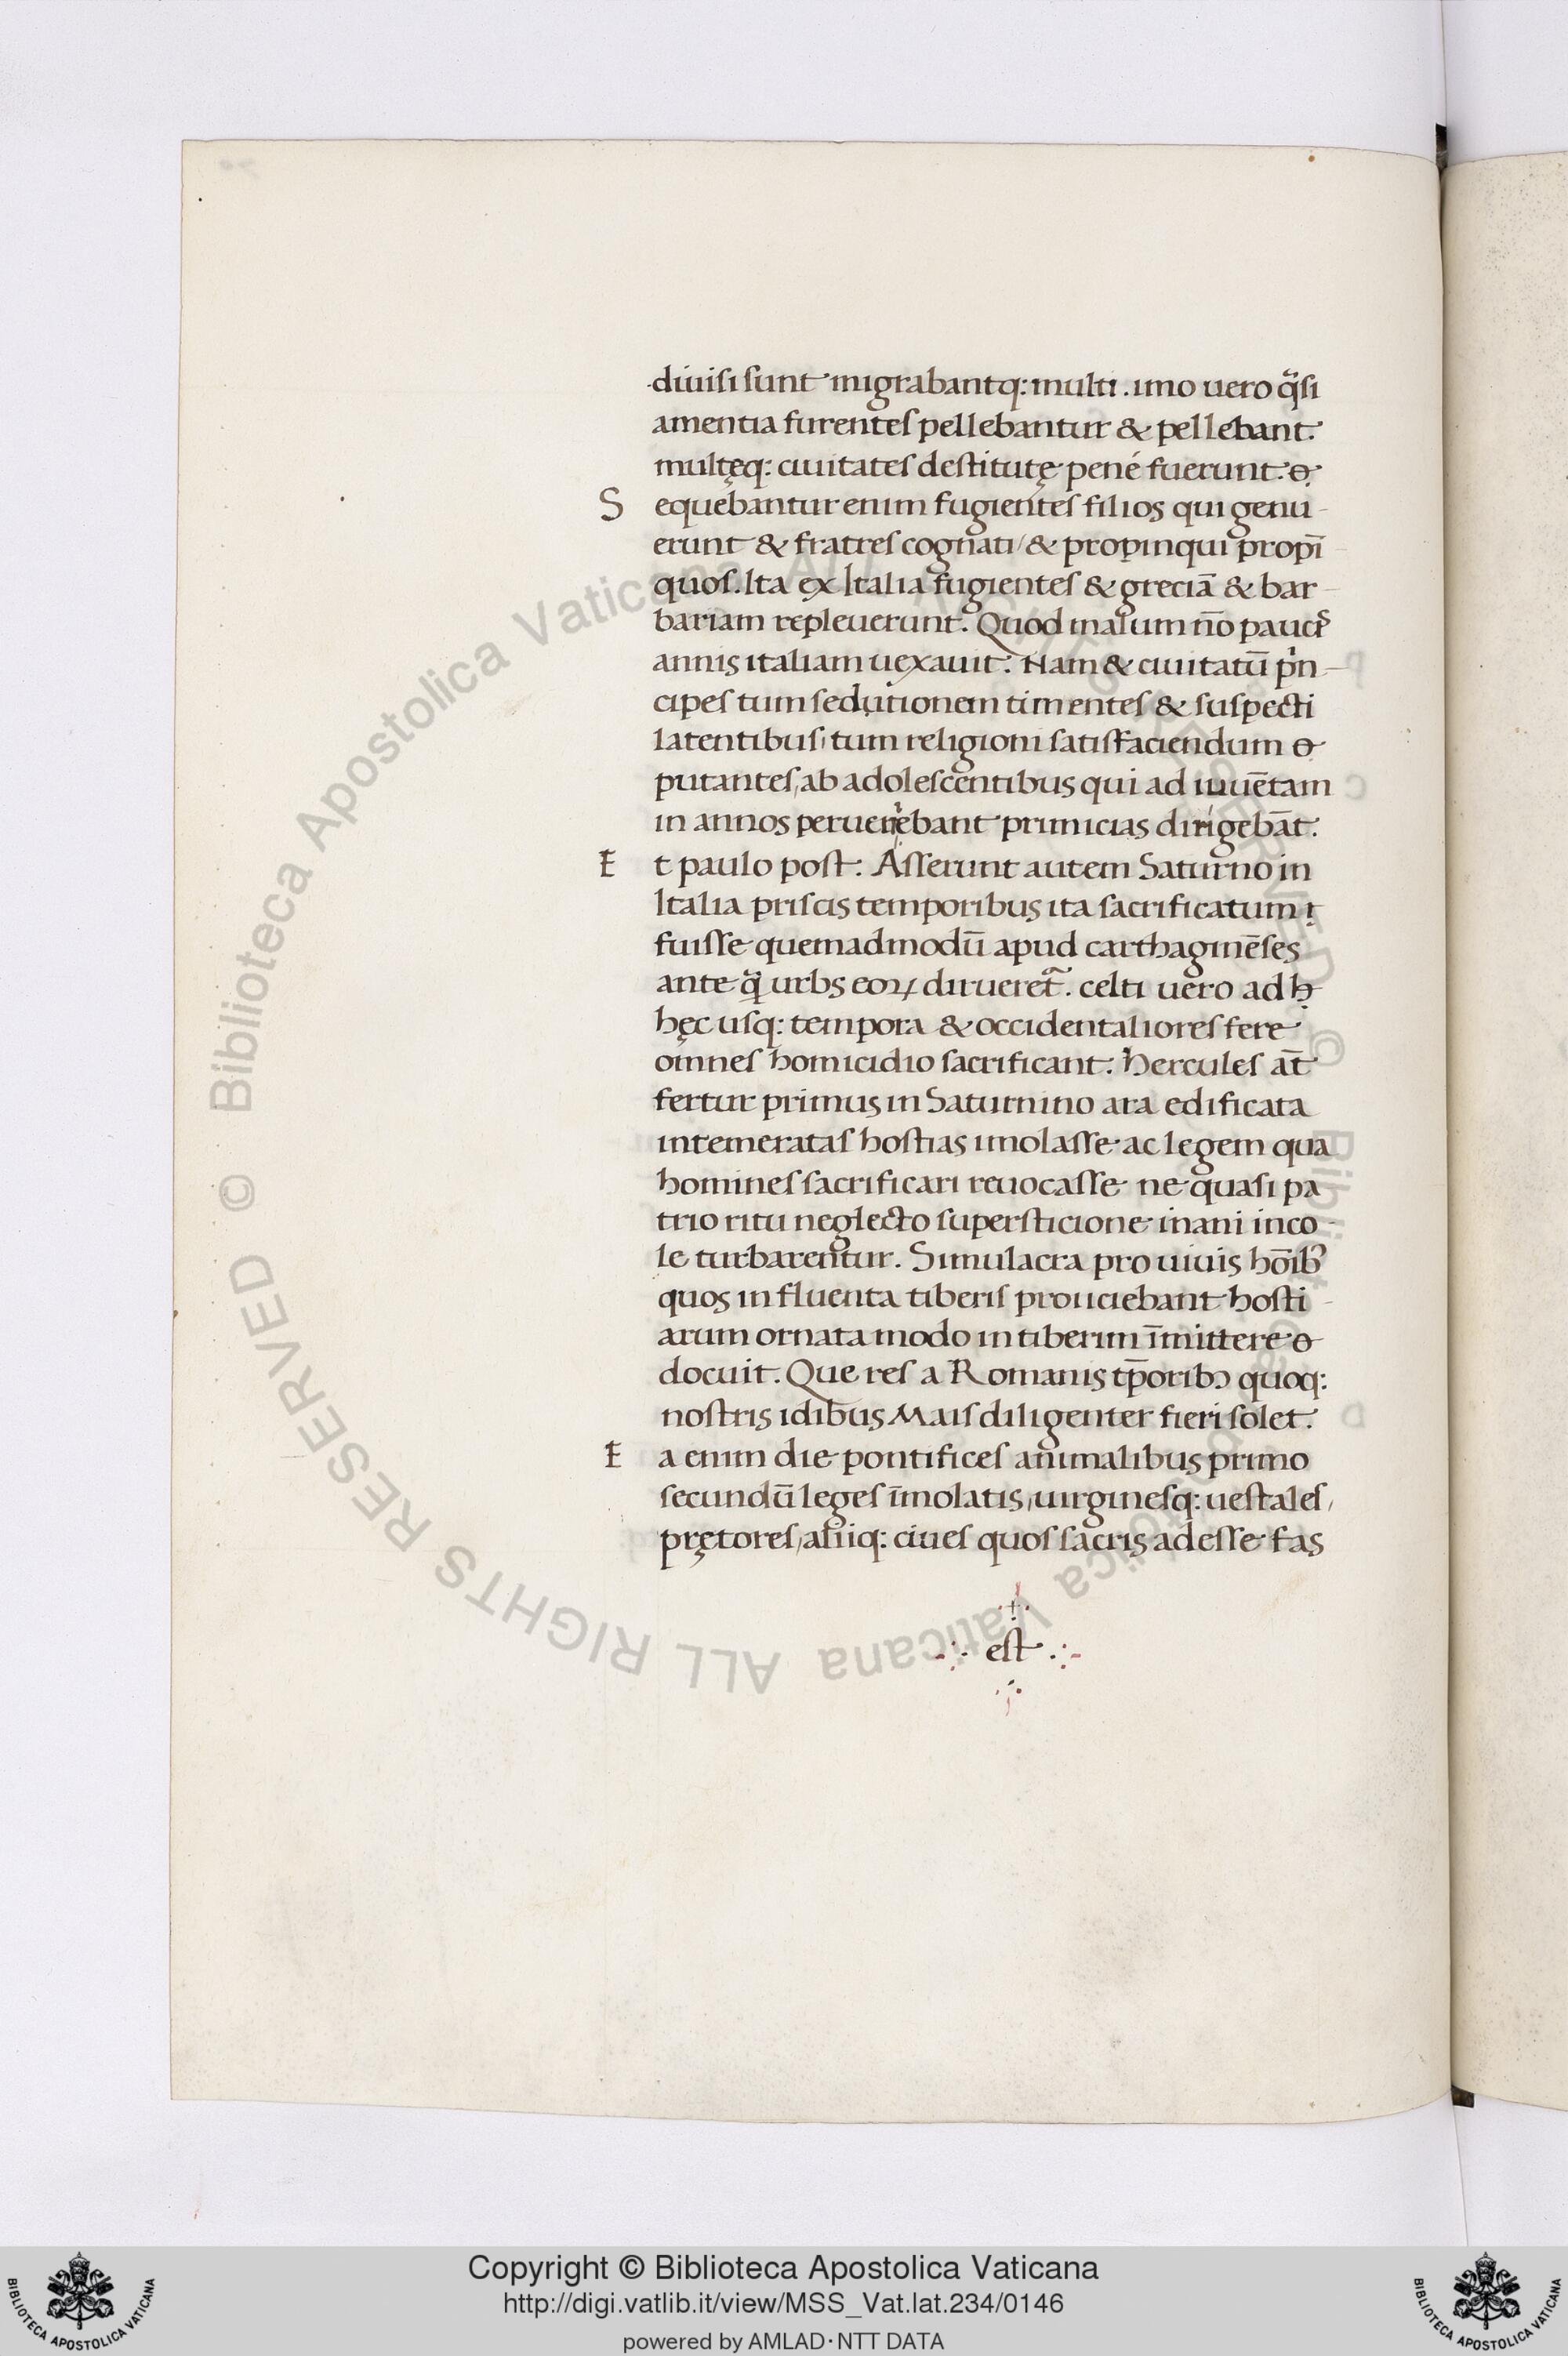 diuisi sunt migrabantq: multi. imo uero q̃si
amentia furentes pellebantur & pellebant.
multęq: ciuitates destitutę pené fuerunt.
Sequebantur enim fugientes filios qui genu-
erunt & fratres cognati/ & propinqui propī
quos. Ita ex Italia fugientes & greciā & bar-
bariam repleuerunt. Quod malum nō paucis
annis italiam uexauit. Nam & ciuitatū pͥn-
cipes tum sedutionem timentes & suspecti
latentibus, tum religioni satisfaciendum
putantes, ab adolescentibus qui ad iuuētam
in annos peruenͥebant primicias dirigebāt.
Et paulo post: Asserunt autem Saturno in
Italia priscis temporibus ita sacrificatum
fuisse quemadmodū apud carthaginēses
ante q̃ urbs eoꝝ dirueret᷑. celti uero ad
hęc usq: tempora & occidentaliores fere
omnes homicidio sacrificant. Hercules āt
fertur primus in Saturnino ara edificata
intemeratas hostias imolasse ac legem qua
homines sacrificari reuocasse ne quasi pa
trio ritu neglecto supersticione inani inco-
le turbarentur. Simulacra pro uiuis hōibꝰ
quos in fluenta tiberis proiiciebant hosti-
arum ornata modo in tiberim īmittere
docuit. Que res a Romanis tp̄oribꝰ quoq:
nostris idibus Mais diligenter fieri solet.
Ea enim die pontifices animalibus primo
secundū leges īmolatis, uirginesq: uestales,
prętores, aliiq: ciues quos sacris adesse fas
est
© Biblioteca Apostolica Vaticana ALL RIGHTS RESERVED © Biblioteca Apostolica Vaticana ALL RIGHTS RESERVED
BIBLIOTECA APOSTOLICA VATICANA
Copyright © Biblioteca Apostolica Vaticana
http://digi.vatlib.it/view/MSS_Vat.lat.234/0146
powered by AMLAD·NTT DATA
BIBLIOTECA APOSTOLICA VATICANA